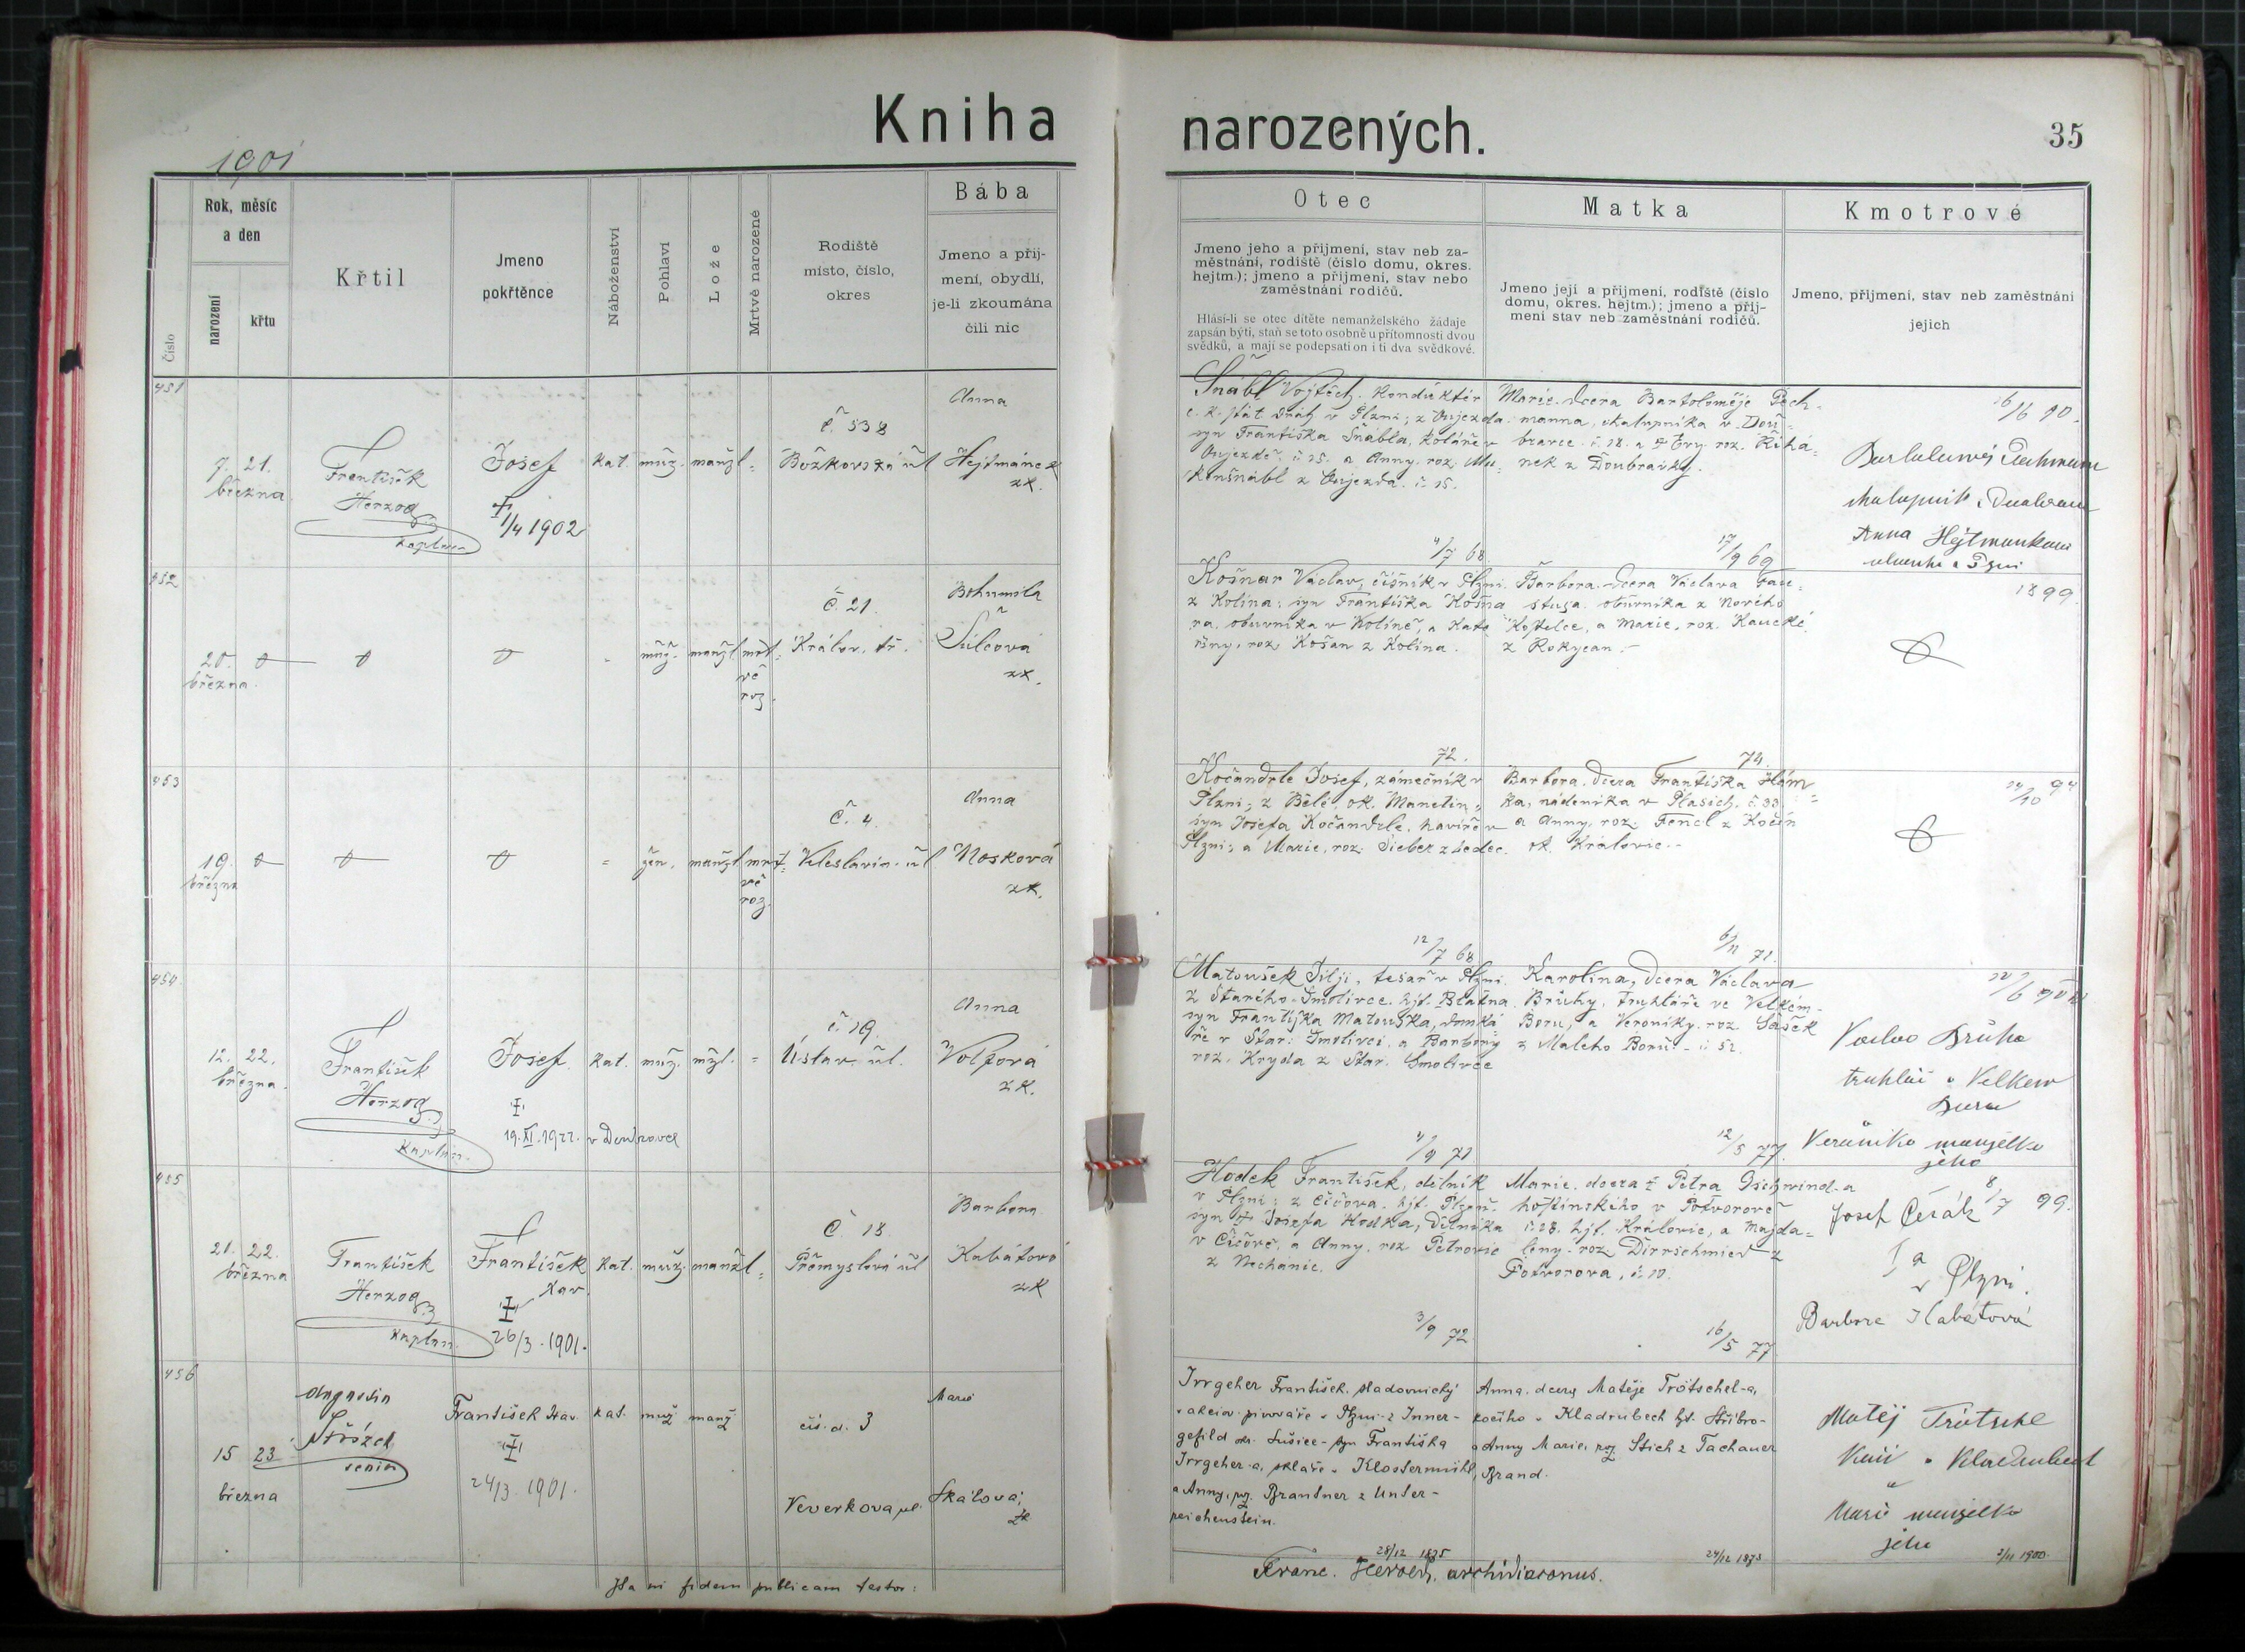 Kniha narozených.
35
1901
Číslo
Rok, měsíc
a den
narození
křtu
Křtil
Jmeno
pokřtěnce
Náboženství
Pohlaví
Lože
Mrtvě narozené
Rodiště
místo, číslo,
okres
Bába
Jmeno a příj-
mení, obydlí,
je-li zkoumána
čili nic
Otec
Jmeno jeho a příjmení, stav neb za-
městnání, rodiště (číslo domu, okres.
hejtm.); jmeno a příjmení, stav nebo
zaměstnání rodičů.
Hlásí-li se otec dítěte nemanželského žádaje
zapsán býti, staň se toto osobně u přítomnosti dvou
svědků, a mají se podepsati on i ti dva svědkové.
Matka
Jmeno její a příjmení, rodiště (číslo
domu, okres. hejtm.); jmeno a příj-
mení stav neb zaměstnání rodičů.
Kmotrové
Jmeno, příjmení, stav neb zaměstnání
jejich
451
7. 21.
března
František
Herzog
kaplan
Josef
1/4 1902
kat. muž. manžl.
č. 538
Božkovská úl
Anna
Hejtmánek
zk.
Šnábl Vojtěch, konduktér
c. k. stát. dráh v Plzni; z Oujezda
syn Františka Šnábla, koláře v
Oujezdě č. 15. a Anny, roz.
z Oujezda. č. 15.
4/7 68
Marie, dcera Bartoloměje Pech-
manna, chalupníka v Dou-
bravce. č. 28. a Evy roz. Řihá-
nek z Doubravky.
17/9 69
16/6 90
Anna Hejtmankova
452
20.
března
muž. manžl mrt-
vě
roz.
Č. 21.
Králov. tř.
Bohumila
Šulcova
zk.
Košnar Václav, číšník v Plzni
z Kolína; syn Františka Košna
ra, obuvníka v Kolíně, a Kate
řiny, roz. Košan z Kolína.
72.
Barbora, dcera Václava
obuvníka z Nového
Kostelce, a Marie, roz. Kaucké
z Rokycan.
74.
1899.
453
19.
března
žen. manžl mrt-
vě
roz.
Č. 4.
Veleslavín. úl
Anna
Nosková
zk.
Kočandrle Josef, zámečník v
Plzni; z Bělé, ok. Manetín,
syn Josefa Kočandrle, havíře v
Plzni; a Marie, roz. Sieber z Ledec.
12/7 68
Barbora, dcera Františka Hám-
ka, nádeníka v Plasích, č. 33
a Anny, roz. Fencl z Kočín
ok. Kralovic.
6/11 71.
24/10 94
454
12. 22.
března.
František
Herzog
kaplan.
Josef
19. XI. 1922. v Doubravce
kat. muž. mžl.
č. 19.
Ústav. úl.
Anna
Volfová
zk.
Matoušek Jiljí, tesař v Plzni
z Starého Smolivce, hjt. Blatna
syn Františka Matouška, domká-
ře v Star. Smolivci a Barbory
roz. Kryda z Star. Smolivce
4/9 71
Karolina, dcera Václava
Brůhy, truhláře ve Velkém
Boru, a Veroniky, roz. Sašek
z Malého Boru. č. 52.
12/5 77.
Vaclav Brůha
truhlář v Velkem
Boru
Veronika manželka
jeho
455
21. 22.
března
František
Herzog
kaplan
František
Xav.
26/3. 1901.
kat. muž. manžl
Č. 18
Přemyslova úl
Barbora
Kabátová
zk
Hodek František, dělník
v Plzni; z Čičova, hjt. Plzeň.
syn Josefa Hodka, dělníka
v Čičově, a Anny, roz. Petrovic
z Nechanic.
3/9 72.
Marie, dcera Petra Gschwind-a
hostinského v Potvorově
č. 28. hjt. Kralovic, a Majda-
leny, roz. Dirrschmied z
Potvorova, č. 10.
16/5 77
8/7 99.
Josef Češák
a
v Plzni.
Barbora Kabátová
456
15 23
března
senior
František Xav.
24/3. 1901.
kat. muž manž
čís. d. 3
Veverkova ul.
Marie
Skálová;
zk
Irrgeher František, sladovnický
v akciov. pivováře v Plzni z Inner-
gefild ok. Sušice - syn Františka
Irrgeher-a, skláře v Klostermühl,
a Anny, roz. Brandner z Unter-
reichenstein.
28/12 1875
Anna, dcera Matěje Trötschel-a,
kočího v Kladrubech hjt. Stříbro-
a Anny Marie, roz. Stich z Tachauer
Brand.
24/12 1873
Matěj Trötschl
kočí v Kladrubech
a
Marie manželka
jeho
2/11 1900.
Ita in fidem publicam testor:
Franc. Herold, archidiaconus.